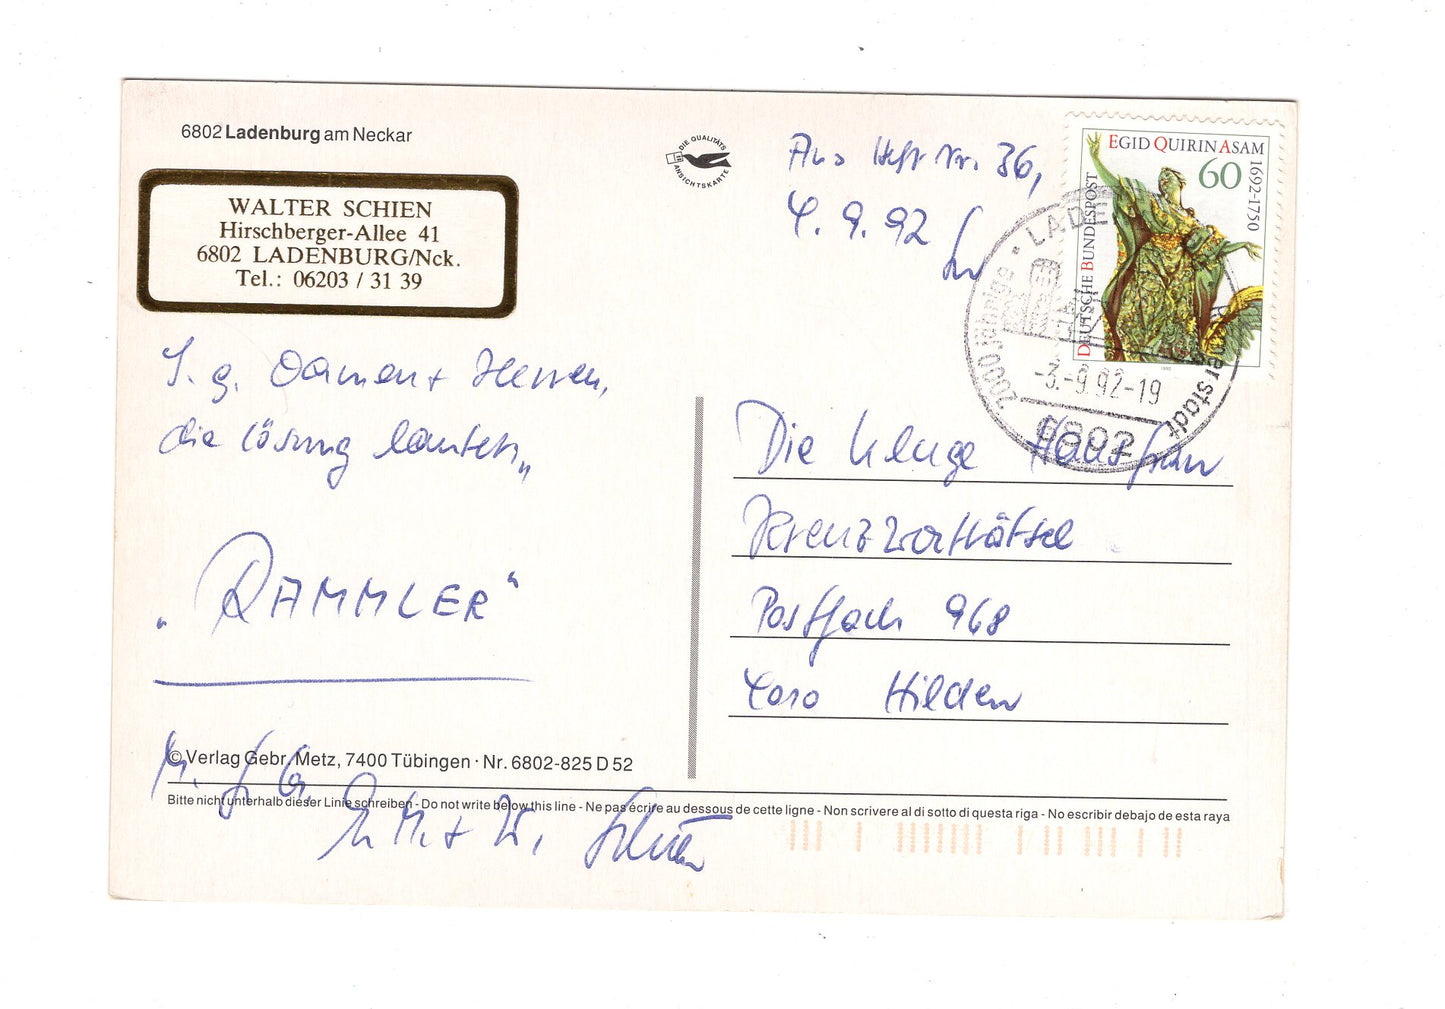 6802 Ladenburg am Neckar
DIE QUALITÄTS
ANSICHTSKARTE
WALTER SCHIEN
Hirschberger-Allee 41
6802 LADENBURG/Nck.
Tel.: 06203 / 31 39
Aus Heft Nr. 36,
4. 9. 92
EGID QUIRIN ASAM
1692-1750
60
DEUTSCHE BUNDESPOST
LADE
2000 jährige
erstadt
-3.-9.92-19
6802
S. g. Damen + Herren,
die Lösung lautet:
"RAMMLER"
Die kluge Hausfrau
Kreuzworträtsel
Postfach 968
4010 Hilden
© Verlag Gebr. Metz, 7400 Tübingen · Nr. 6802-825 D 52
Bitte nicht unterhalb dieser Linie schreiben - Do not write below this line - Ne pas écrire au dessous de cette ligne - Non scrivere al di sotto di questa riga - No escribir debajo de esta raya
M. f. G.
M. + W. Schien